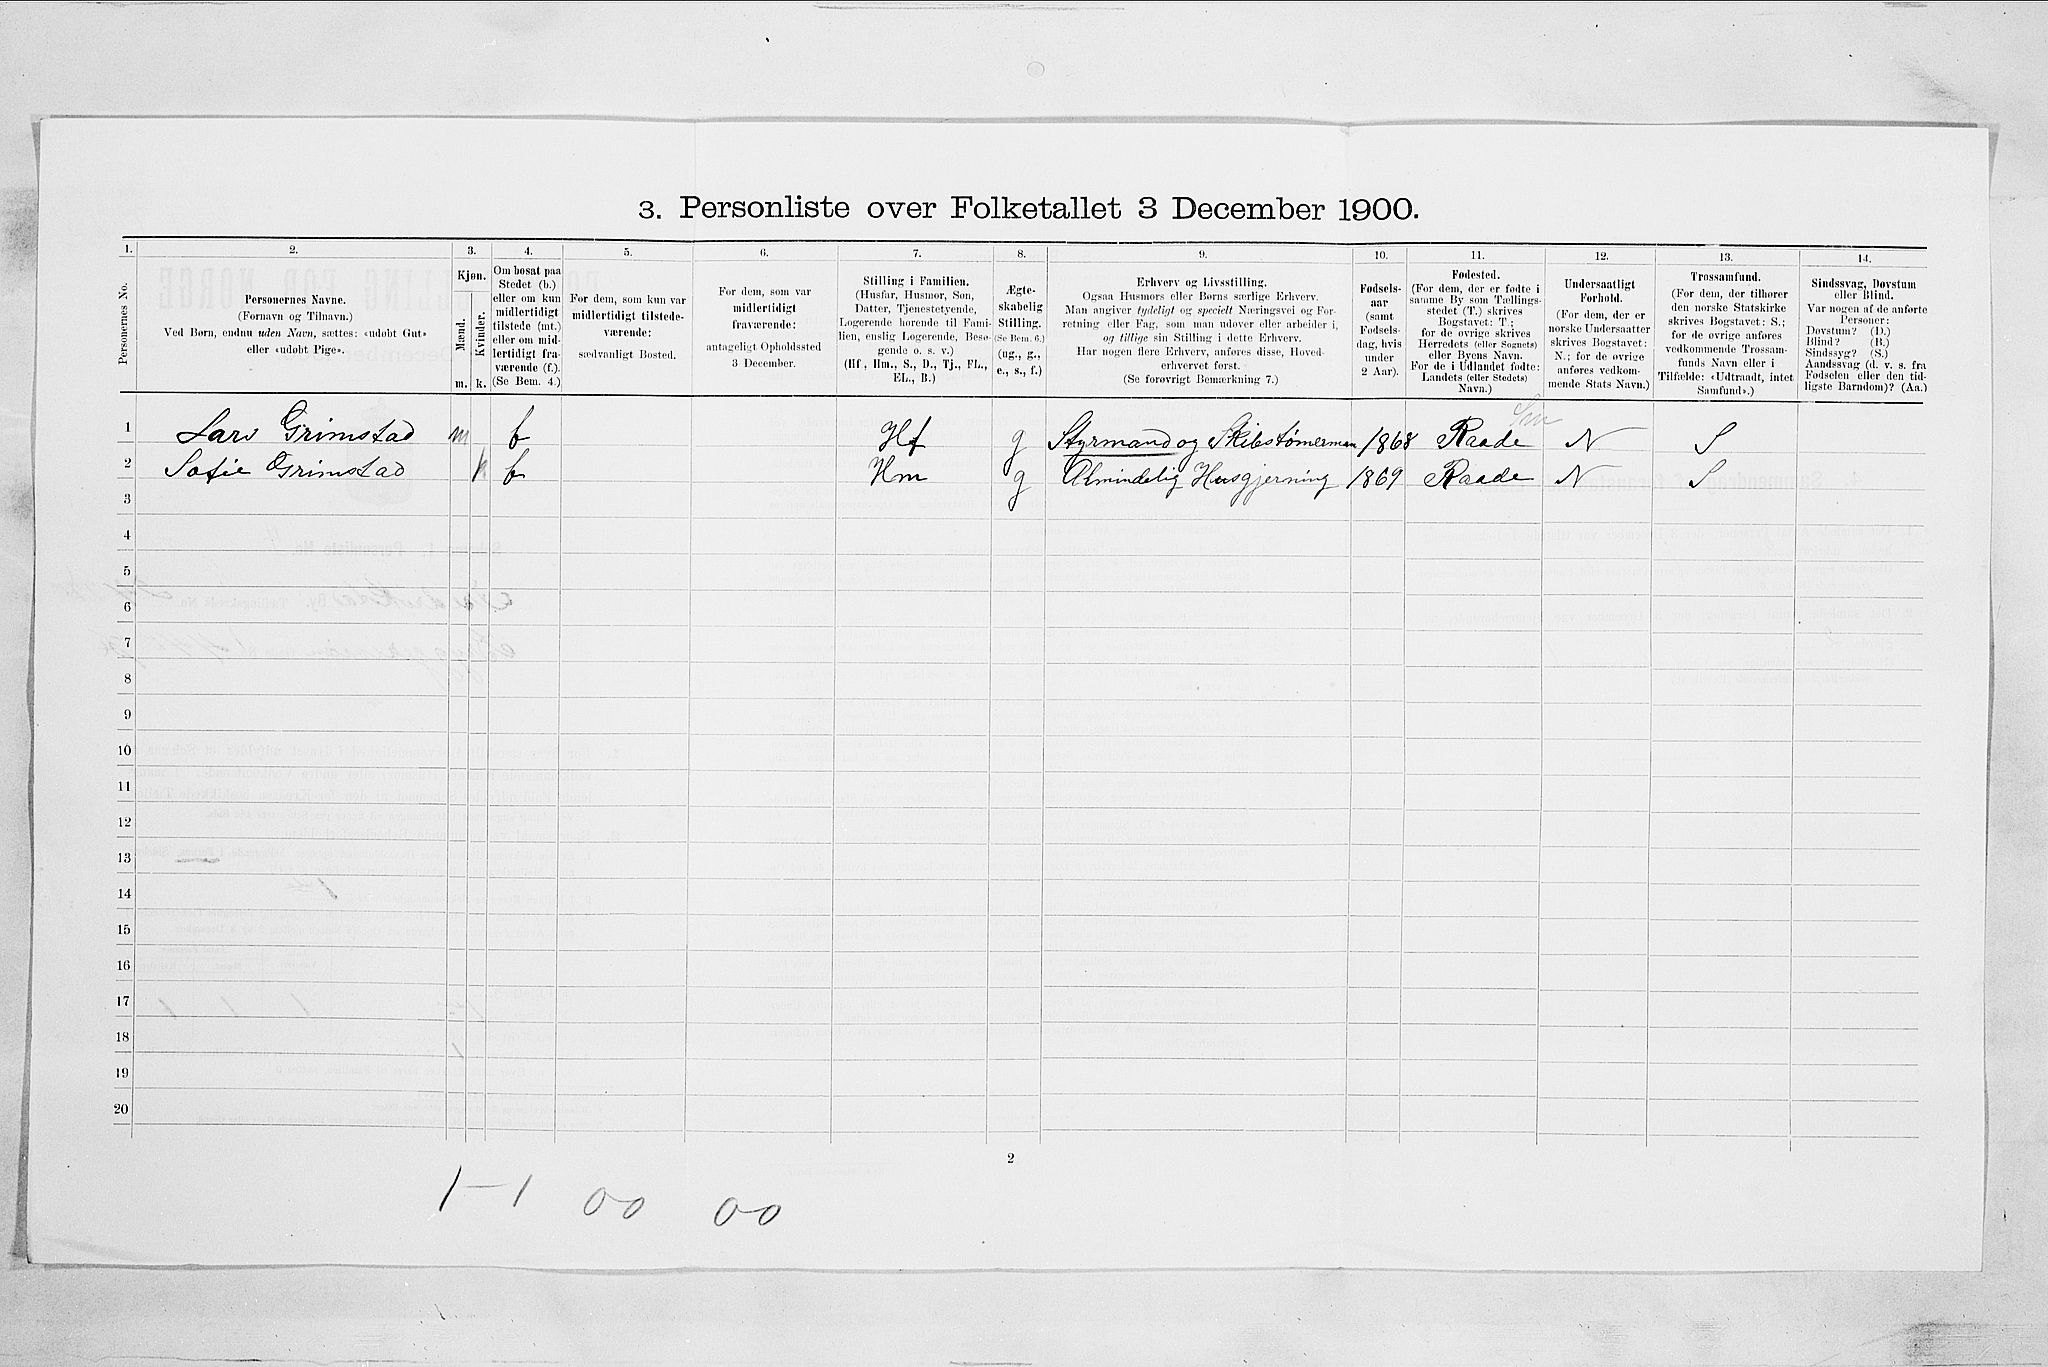 3. Personliste over Folketallet 3 December 1900.
1. 2. 3. 4. 5. 6. 7. 8. 9. 10. 11. 12. 13. 14.
Personernes No.
Personernes Navne.
(Fornavn og Tilnavn.)
Ved Børn, endnu uden Navn, sættes: «udøbt Gut»
eller «udøbt Pige».
Kjøn.
Mænd.
Kvinder.
m. k.
Om bosat paa
Stedet (b.)
eller om kun
midlertidigt
tilstede (mt.)
eller om mid-
lertidigt fra-
værende (f.)
(Se Bem. 4.)
For dem, som kun var
midlertidigt tilstede-
værende:
sædvanligt Bosted.
For dem, som var
midlertidigt
fraværende:
antageligt Opholdssted
3 December.
Stilling i Familien.
(Husfar, Husmor, Søn,
Datter, Tjenestetyende,
Logerende hørende til Fami-
lien, enslig Logerende, Besø-
gende o. s. v.)
(Hf, Hm., S., D., Tj., FL.,
EL., B.)
Ægte-
skabelig
Stilling.
(Se Bem. 6.)
(ug., g.,
e., s., f.)
Erhverv og Livsstilling.
Ogsaa Husmors eller Børns særlige Erhverv.
Man angiver tydeligt og specielt Næringsvei og For-
retning eller Fag, som man udøver eller arbeider i,
og tillige sin Stilling i dette Erhverv.
Har nogen flere Erhverv, anføres disse, Hoved-
erhvervet først.
(Se forøvrigt Bemærkning 7.)
Fødsels-
aar
(samt
Fødsels-
dag, hvis
under
2 Aar).
Fødested.
(For dem, der er fødte i
samme By som Tællings-
stedet (T.) skrives
Bogstavet: T.;
for de øvrige skrives
Herredets (eller Sognets)
eller Byens Navn.
For de i Udlandet fødte:
Landets (eller Stedets)
Navn.)
Undersaatligt
Forhold.
(For dem, der er
norske Undersaatter
skrives Bogstavet:
N.; for de øvrige
anføres vedkom-
mende Stats Navn.)
Trossamfund.
(For dem, der tilhører
den norske Statskirke
skrives Bogstavet: S.;
for de øvrige anføres
vedkommende Trossam-
funds Navn eller i
Tilfælde: «Udtraadt, intet
Samfund».)
Sindssvag, Døvstum
eller Blind.
Var nogen af de anførte
Personer:
Døvstum? (D.)
Blind? (B.)
Sindssyg? (S.)
Aandssvag (d. v. s. fra
Fødselen eller den tid-
ligste Barndom)? (Aa.)
1 Lars Grimstad m b Hf g Styrmand og Skibstømerman 1868 Raade N S
2 Sofie Grimstad k b Hm g Almindelig Husgjerning 1869 Raade N S
3
4
5
6
7
8
9
10
11
12
13
14
15
16
17
18
19
20
2
1-1 00 00